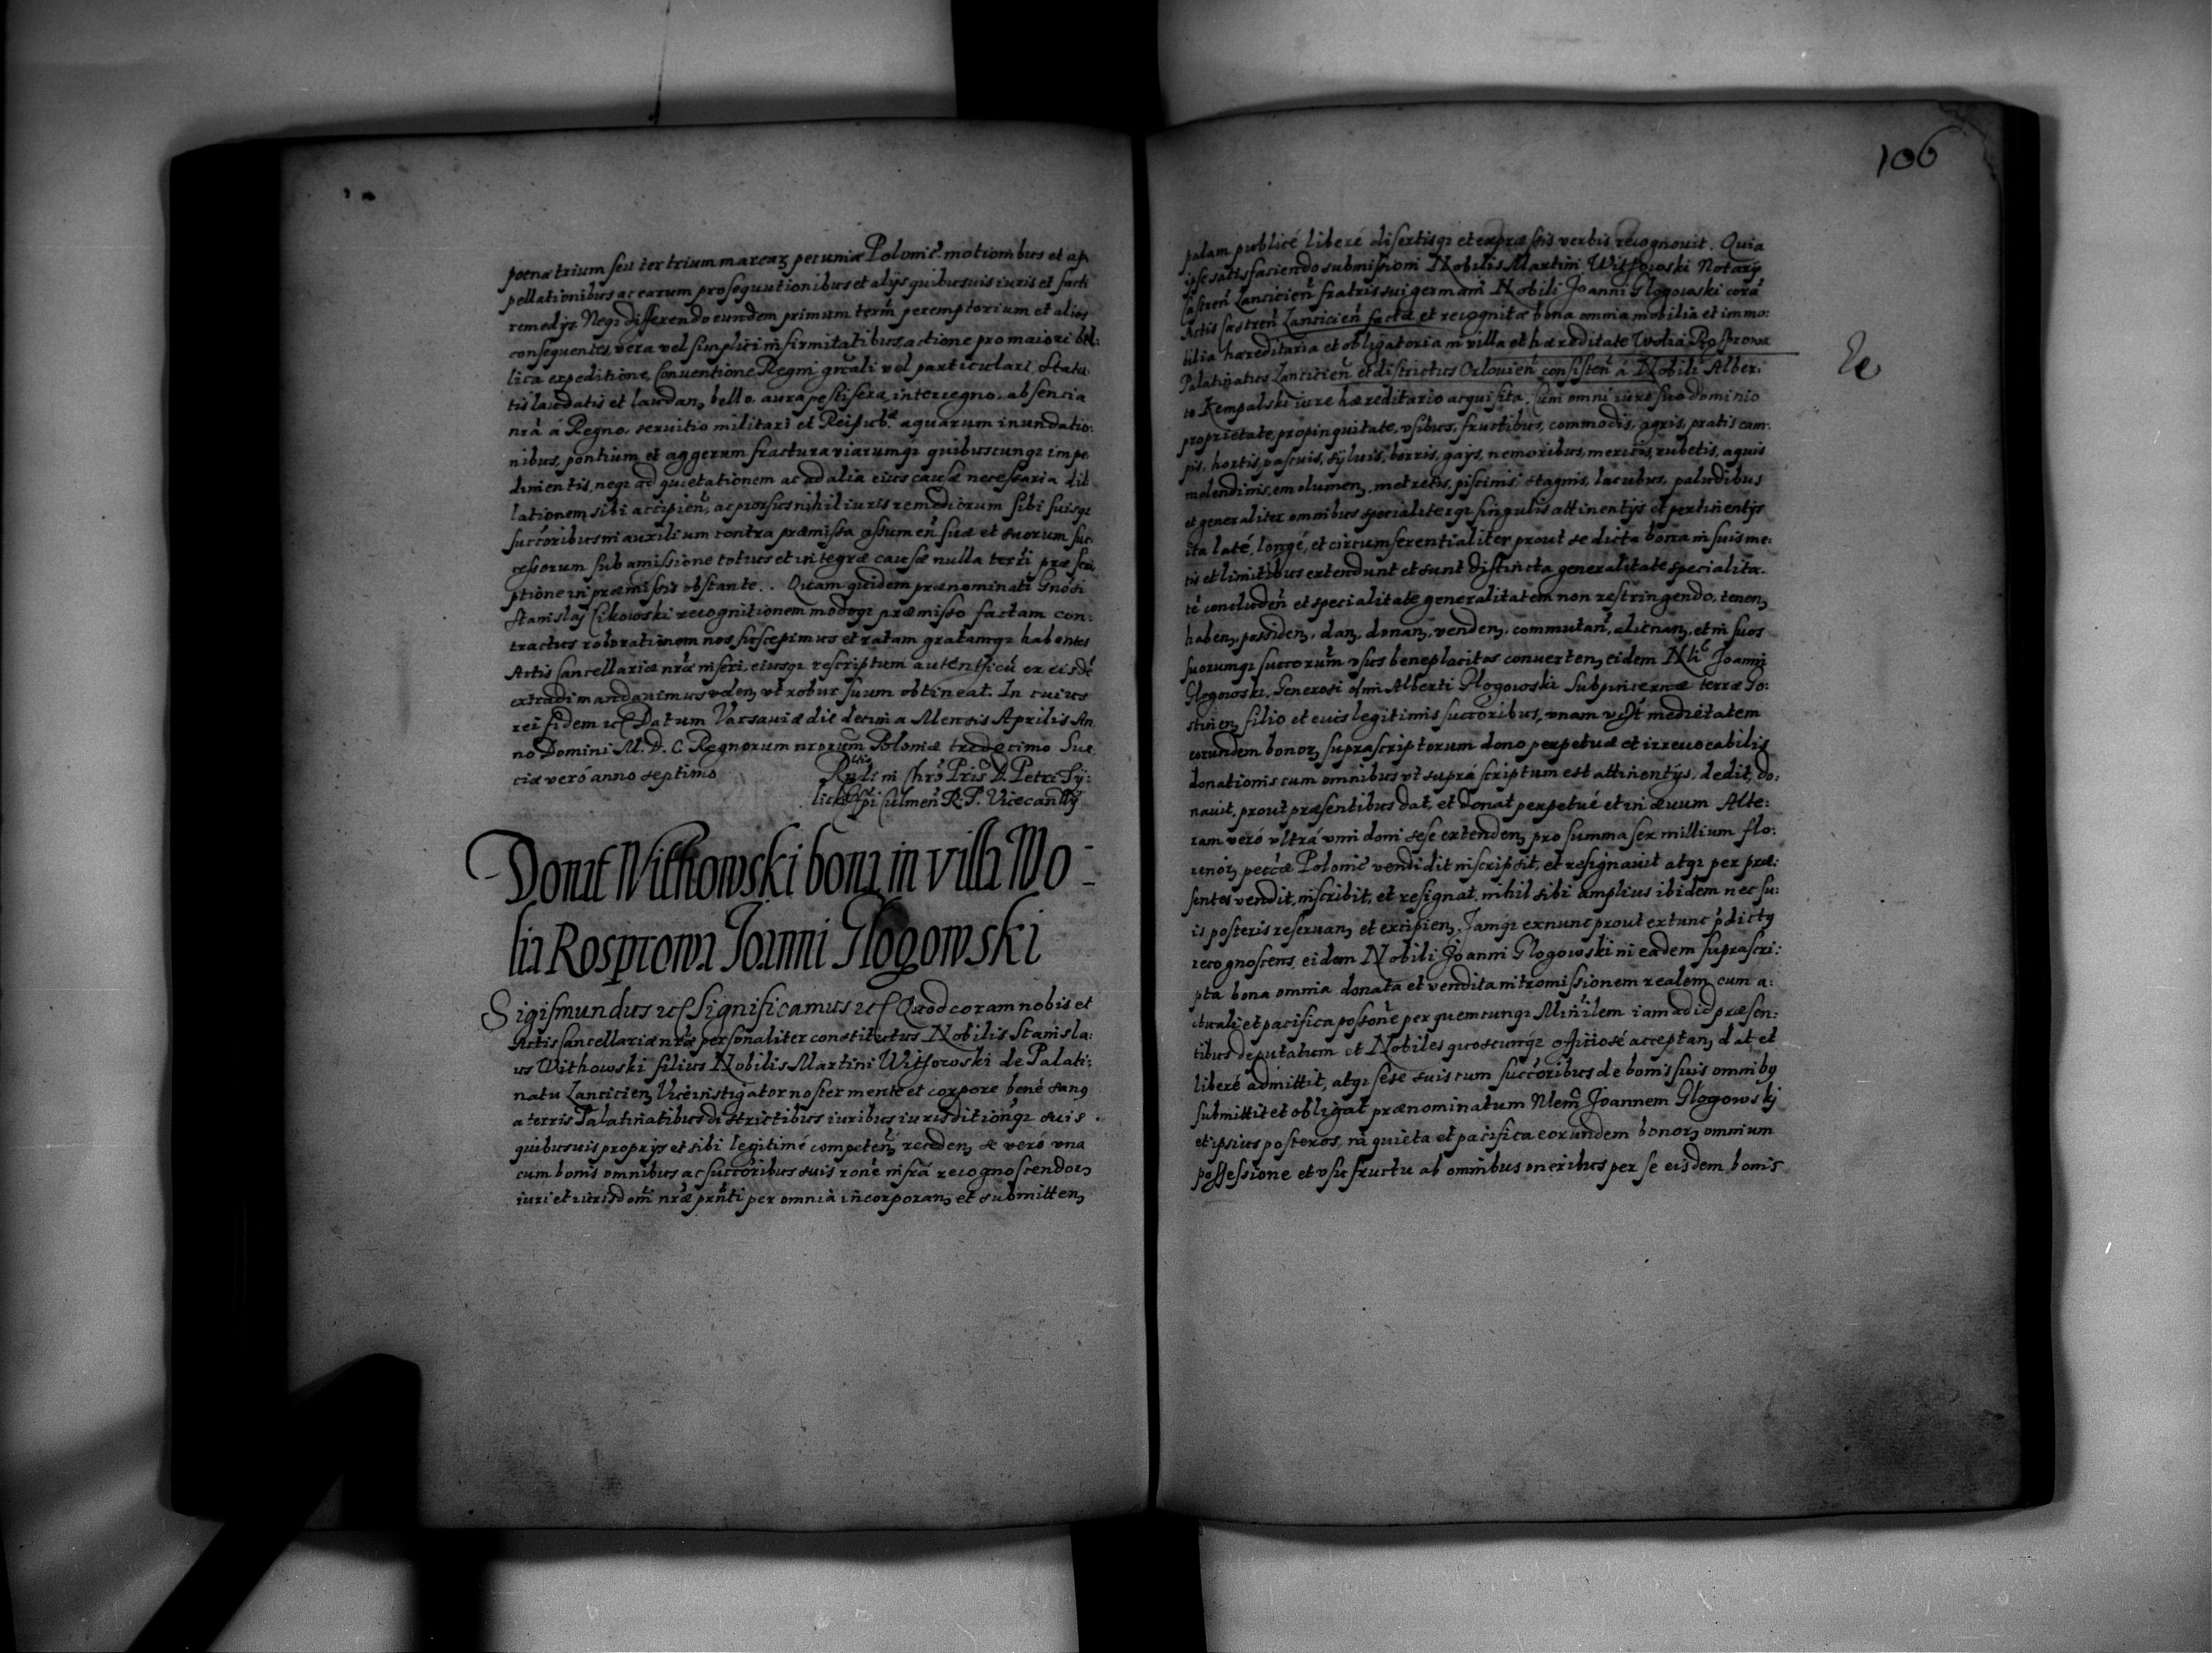 poenæ trium seu ter trium marcarʒ pecuniæ Polonic̃. motionibus et ap
pellationibus ac earum prosequutionibus et alijs quibusuis iuris et facti
remedijs. Neqʒ differendo eundem primum term̃ peremptorium et alios
consequentes, vera vel simplici infirmitatibus actione pro maiori bel:
lica expeditione, Conuentione Regni gn̄ali vel particulari, Statu
tis laudatis et laudanʒ bello. aura pestifera, interregno. absencia
nr̃a á Regno. seruitio militari et Reipub:ᶜᵃ aquarum inundatio:
nibus, pontium et aggerum fractura viarumqʒ quibuscunqʒ impe
dimentis, neqʒ ad quietationem ac ad alia eius causæ necessaria dil
lationem sibi accipien̄, ac prorsus nihil iuris remediorum sibi suisqʒ
succoribus in auxilium contra præmissa assumen̄ suæ et suorum suc
cessorum sub amissione totius et integræ causæ nulla terr̃i præscri
ptione in præmissis obstante. . Quam quidem prænominati Gnosi
Stanislaj Cikowski recognitionem modoqʒ præmisso factam con:
tractus roborationem nos suscepimus et ratam gratamqʒ habentes
Actis Cancellariæ nr̃æ inscri, eiusqʒ rescriptum autenthicũ ex eisdẽ
extradi mandauimus volenʒ vt robur suum obtineat. In cuius
rei fidem ꝛc Datum Varsauiæ die decima Mensis Aprilis An
no Domini M. D. C. Regnorum nrorum Poloniæ tredecimo Sue
ciæ veró anno septimo
Rndi in Chrõ Pris D. Petri Ty:
licki Epi Culmen̄ R. P. Vicecanllrij
Donat Withowski bona in villa Wo-
lia Rosprowa Ioanni Glogowski
Sigismundus ꝛc Significamus ꝛc Quod coram nobis et
Actis Cancellariæ nr̃æ personaliter constitutus Nobilis Stanisla:
us Withowski filius Nobilis Martini Withowski de Palati:
natu Lancicienʒ Viceinstigator noster mente et corpore bené sanꝯ
a terris Palatinatibus districtibus iuribus iurisditionqʒ suis .
quibusuis proprijs et sibi legitimé competen̄ recedenʒ se veró vna
cum bonis omnibus ac succoribus suis rone infrá recognoscendorʒ
iuri et iurisdom̃ nr̃æ prñti per omnia incorporanʒ et submittenʒ
106
palam publicé liberé disertisqʒ et expræssis verbis recognouit. Quia
ipse satisfaciendo submissioni Nobilis Martini Withowski Notarij
Castren̄ Lancicien̄ fratris sui germani Nobili Joanni Glogowski corã
Actis Castren̄ Lancicien̄ factæ et recognitæ bona omnia mobilia et immo:
bilia hæreditaria et obligatoria in villa et hæreditate Wolia Rosprowa
Palatinatus Lancicien̄ et districtus Orlouien̄ consisten̄ á Nobili Alber:
to Kempalski iure hæreditario acquisita. Cum omni iure suo dominio
proprietate, propinquitate, vsibus, fructibus, commodis, agris, pratis cam:
pis, hortis, pascuis, syluis, borris, gays, nemoribus, mericis, rubetis, aquis
molendinis, emolumenʒ. metretis, piscinis, stagnis, lacubus, paludibus
et generaliter omnibus specialiterqʒ singulis attinentijs et pertinentijs
ita laté, longé, et circumferentialiter prout se dicta bona in suis me:
tis et limitibus extendunt et sunt distincta generalitate specialita.
tẽ concluden̄ et specialitate generalitatem non restringendo. tenenʒ
habenʒ, possidenʒ, danʒ, donanʒ, vendenʒ, commutan̄, alienanʒ, et in suos
suorumqʒ succorum̃ vsus beneplacitos conuertenʒ eidem Nli Joanni
Glogowski. Generosi olim Alberti Glogowski Subpincernæ terræ Go:
stinenʒ filio et euis legitimis succoribus, vnam vidꝫt medietatem
eorundem bonorʒ suprascriptorum dono perpetuæ et irreuocabilis
donationis cum omnibus vt suprá scriptum est attinentijs, dedit, do:
nauit, prout præsentibus dat, et donat perpetué et in æuum Alte:
ram veró vltrá vim doni sese extendenʒ pro summa sex millium flo:
renorʒ peccæ Polonic̃ vendidit inscripsit, et resignauit atqʒ per præ:
sentes vendit, inscribit, et resignat. nihil sibi amplius ibidem nec su:
is posteris reseruanʒ et excipienʒ. Jamqʒ exnunc prout extunc p̃dictꝯ
recognoscens, eidem Nobili Joanni Glogowski in eadem suprascri:
pta bona omnia donata et vendita intromissionem realem, cum a:
ctuali et pacifica possone per quemcunqʒ Min̄ilem iam ad id præsen:
tibus deputatum et Nobiles quoscunqʒ officiosé acceptanʒ dat et
liberé admittit, atqʒ sese suis cum succoribus de bonis suis omnibꝯ
submittit et obligat prænominatum Nlem̃ Joannem Glogowskj
et ipsius posteros, in quieta et pacifica eorundem bonorʒ omnium
possessione et vsufructu ab omnibus oneribus per se eisdem bonis